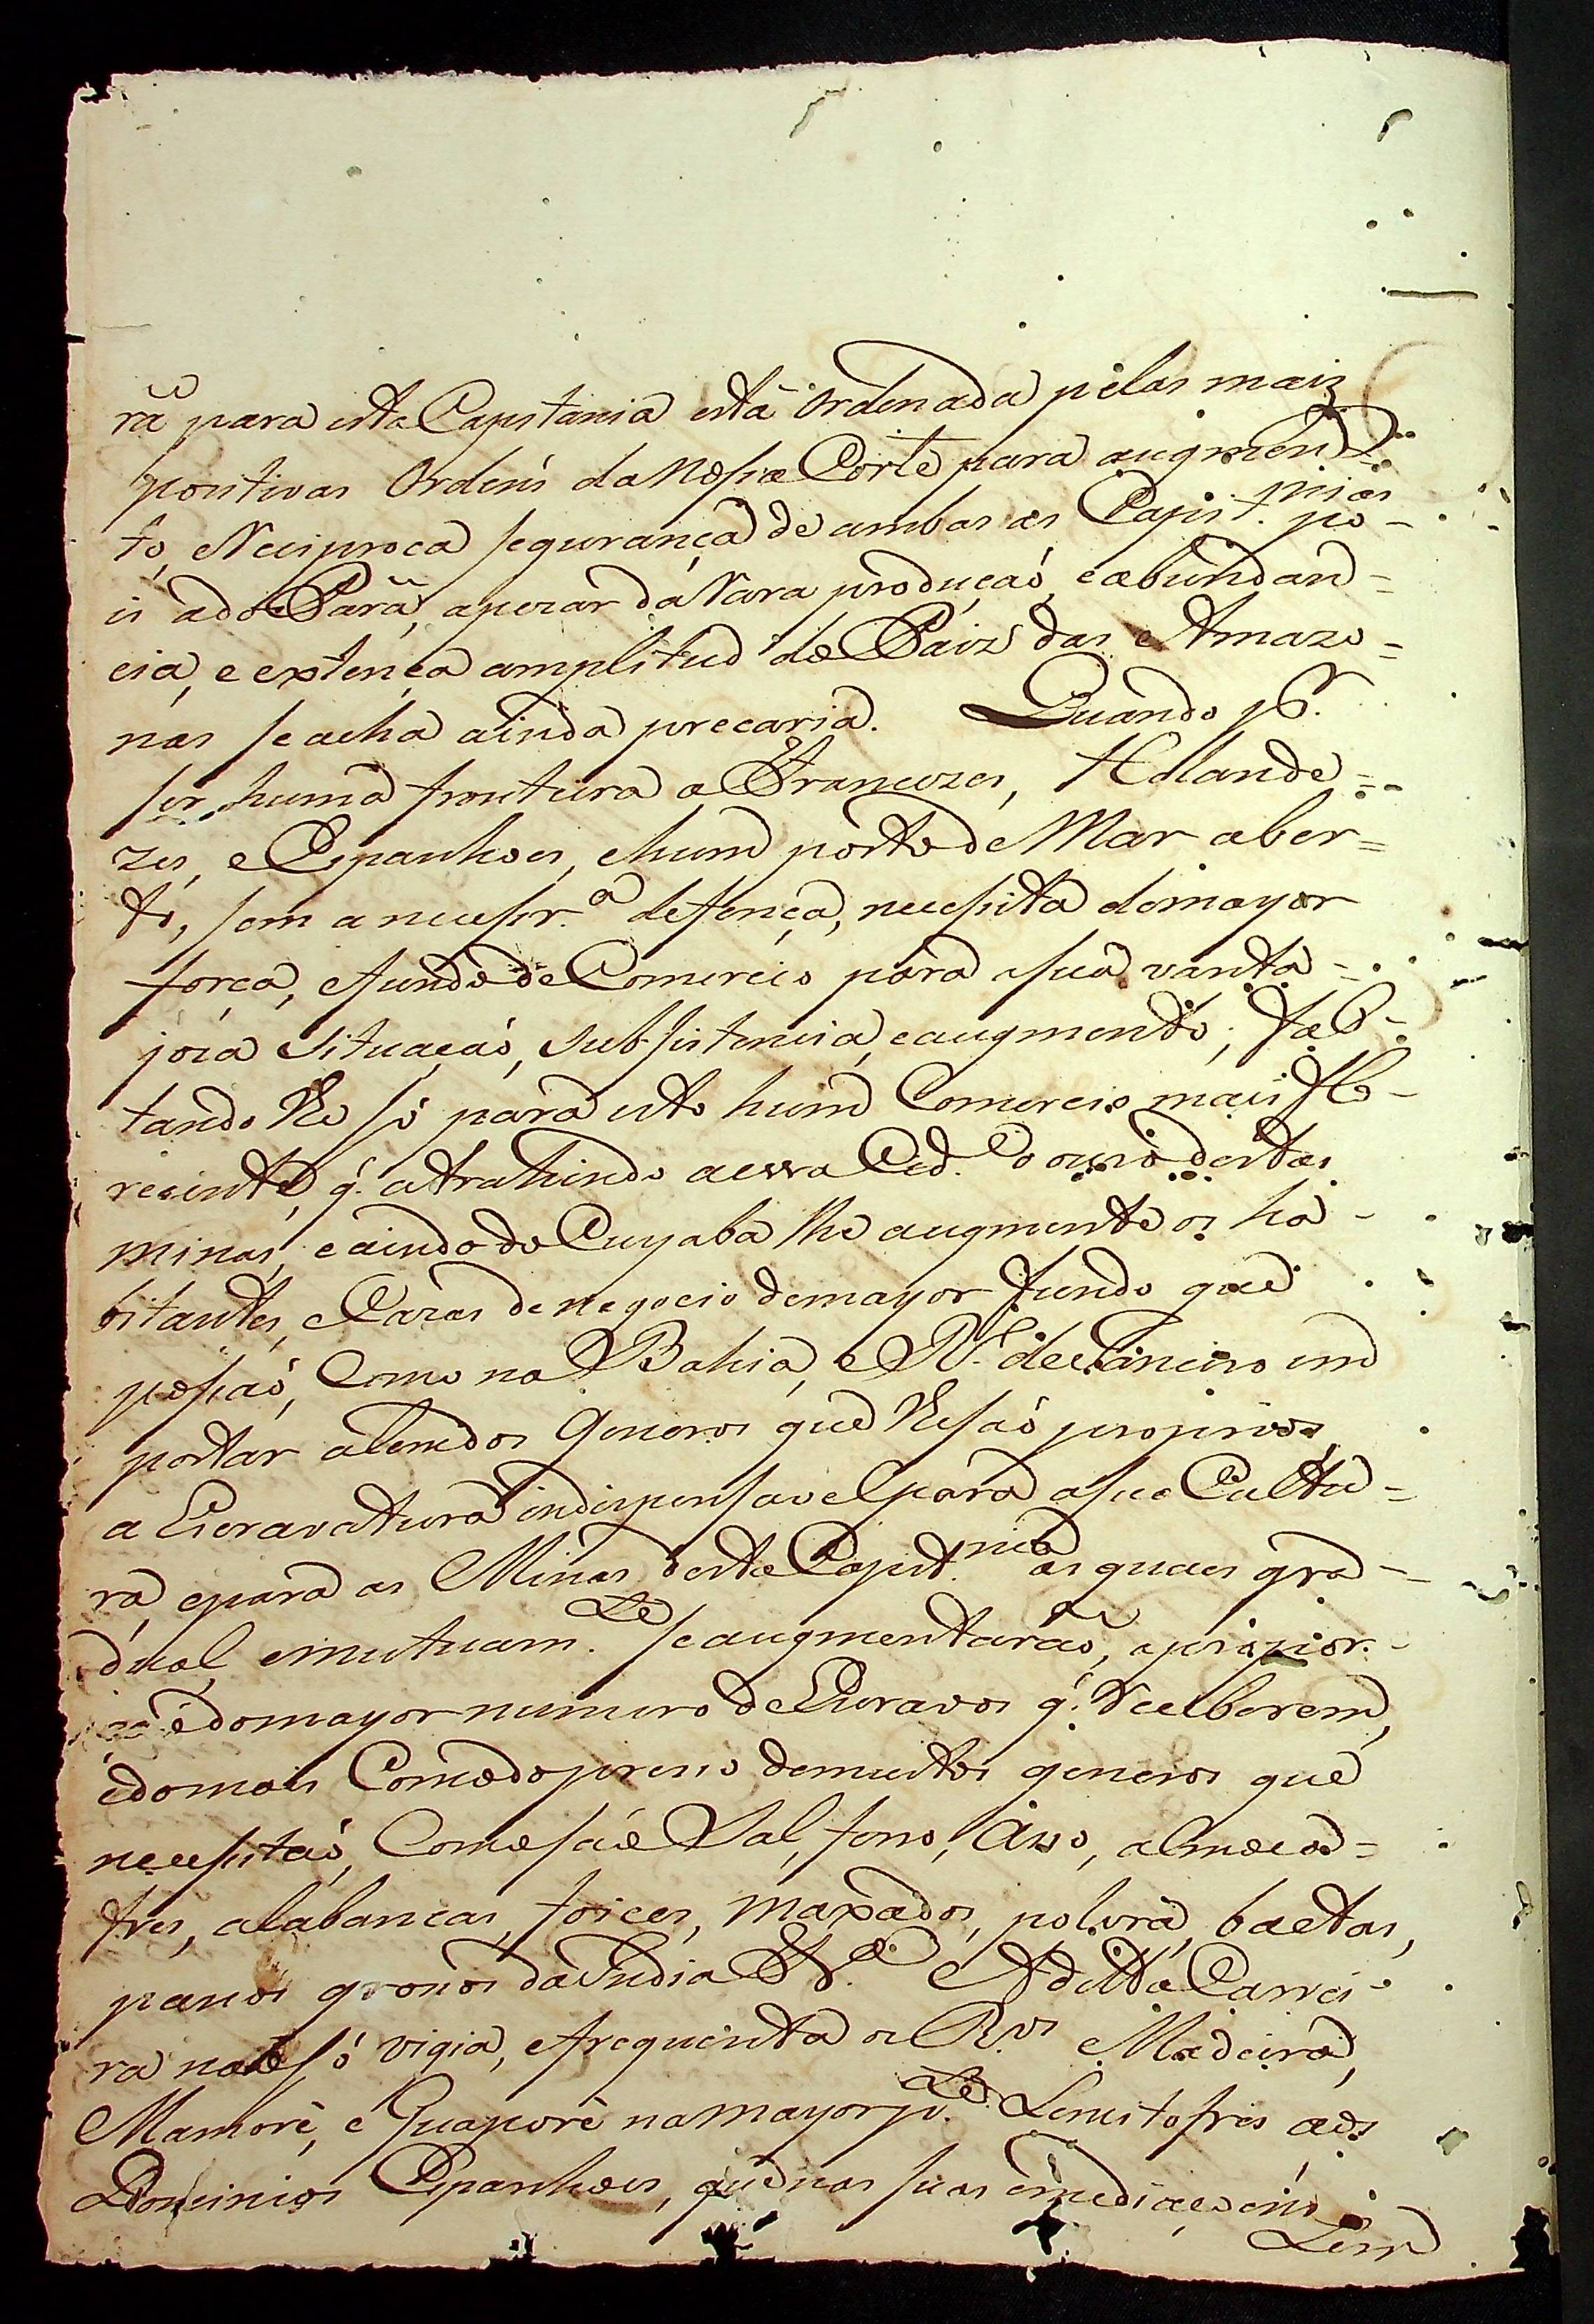 rá para esta Capitania está Ordenada pelas maiz
positivas Ordens da Nossa Corte para augmen
to, e Reciproca segurança de ambas as Capit.nias po-
is a do Pará, apezar da Rara produçaó, e abundan=
cia, e extença amplitud do Paiz das Amazo=
nas se acha ainda precaria. Quando p.r
ser huma fronteira a Francezes, Holande=
zes, e Espanhoes, e hum porto de Mar aber=
to, sem a necessr.a defença, necessita de mayor
força, e fundo de Comercio para a sua vanta=
joza Situaçaó, Subsistencia, e augmento; fal-
tando lhe só para isto hum Comercio mais flo-
recente, q. atrahindo a essa Cid.e o ouro destas
minas, e ainda do Cuyaba lhe augmente os ha-
bitantes, e Cazas de negocio de mayor fundo que
possaó, Como na Bahia, e R.o de Janeiro im
portar alem dos Generos que lhe saó proprios,
a Escravatura indispensavel para a sua Cultu=
ra, e para as Minas desta Capit.nia as quaes gra-
dual, e mutuam.te se augmentaráo, a propor-
çaó do mayor numero de Escravos q. Receberem,
e do mais Comodo preso de muitos generos que
necessitaó, Como saó Sal, ferro, Asso, almoca=
fres, alabancas, foices, maxados, polvra, baetas,
panos grossos da India &.a A ditta Carrei-
ra naó só vigia, e frequenta os R.os Madeira,
Mamoré, e Guaporé na mayor p.te Lemitofres aos
Dominios Espanhoes, que nas suas imediaçoens
Tem